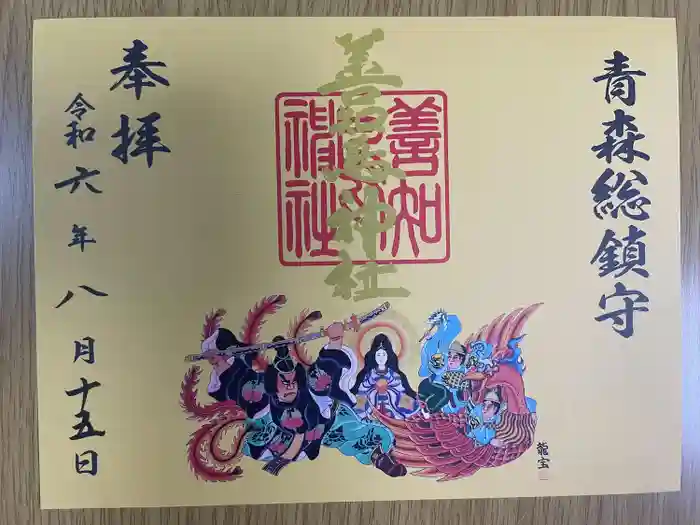 青森総鎮守
善知鳥神社
善知
神社
奉拝
令和六年八月十五日
龍宝